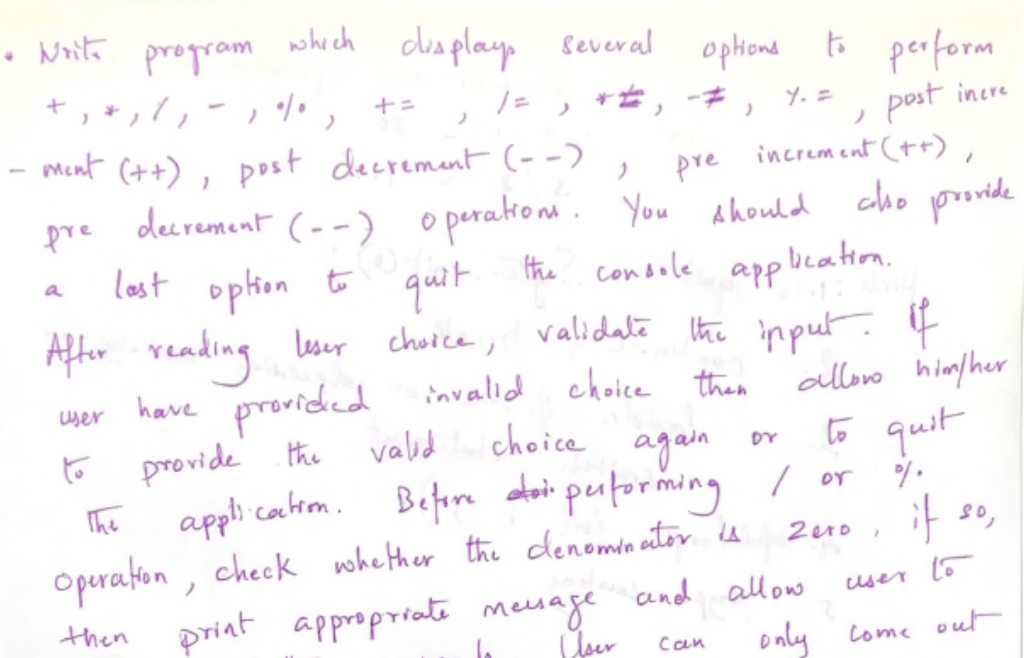 • Write program which displays several options to perform
+, *, /, -, %, +=, /=, *=, -=, %=, post incre
- ment (++), post decrement (--), pre increment (++),
pre decrement (--) operations. You should also provide
a last option to quit the console application.
After reading user choice, validate the input. If
user have provided invalid choice then allow him/her
to provide the valid choice again or to quit
The application. Before performing / or %
operation, check whether the denominator is zero, if so,
then print appropriate message and allow user to
User can only come out